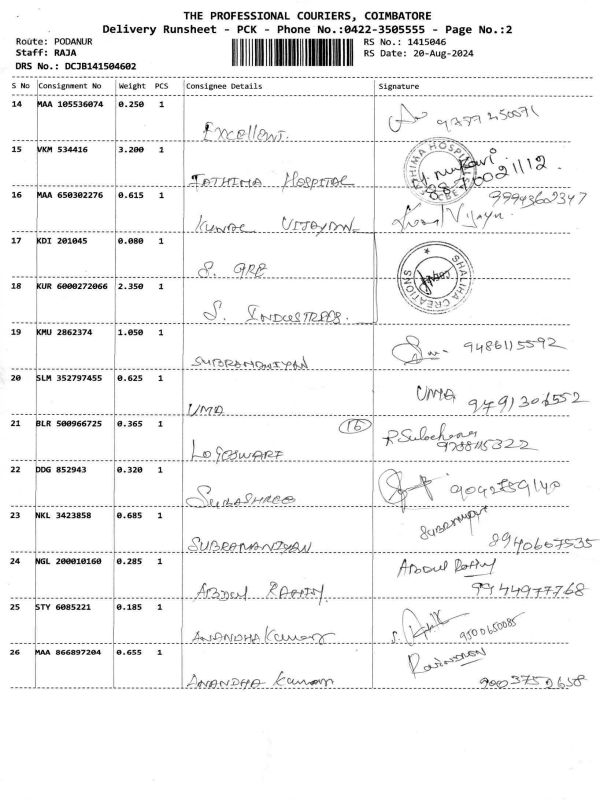 THE PROFESSIONAL COURIERS, COIMBATORE
Delivery Runsheet - PCK - Phone No.:0422-3505555 - Page No.:2
Route: PODANUR RS No.: 1415046
Staff: RAJA RS Date: 20-Aug-2024
DRS No.: DCJB141504602
S No Consignment No Weight PCS Consignee Details Signature
14 MAA 105536074 0.250 1
Excellent.
15 VKM 534416 3.200 1
FATHIMA HOSPITAL
16 MAA 650302276 0.615 1 99943602347
KUNAL VIJAYAN
17 KDI 201045 0.080 1
S. GRB
SHALIHA CREATIONS
18 KUR 6000272066 2.350 1
S. INDUSTRIES.
19 KMU 2862374 1.050 1
9486115592
SUBRAMANIYAN
20 SLM 352797455 0.625 1
UMA 9791301552
UMA
21 BLR 500966725 0.365 1 16
R Sulochana
9788115322
LOGESWARI
22 DDG 852943 0.320 1
9092759140
SUBASHREE
23 NKL 3423858 0.685 1
SUBRAMANIYAN 8940607535
24 NGL 200010160 0.285 1
ABDUL RAFFIY 9944977768
25 STY 6085221 0.185 1
9500650085
ANANDHA Kumar
26 MAA 866897204 0.655 1
ANANDHA Kumar 9003752658